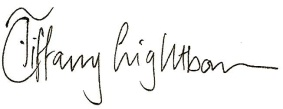 Tiffany Lightbourn